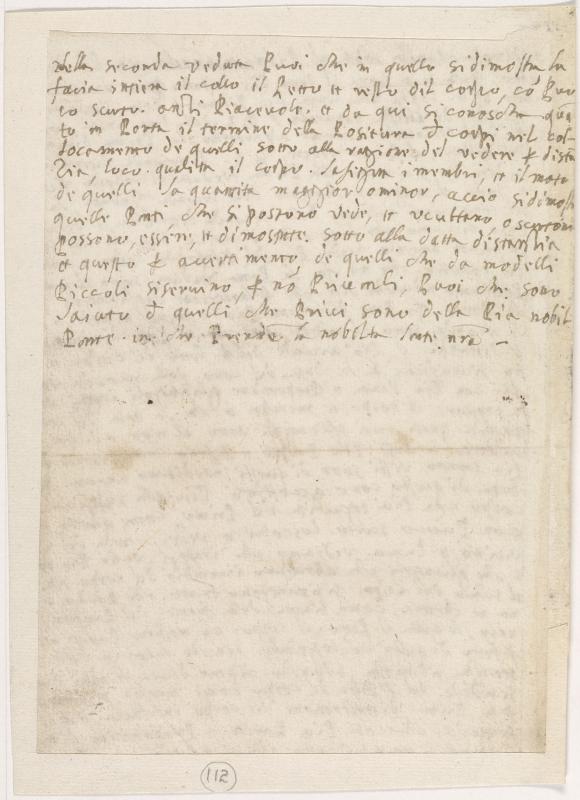 della seconda veduta Puoi che in quello si dimostra la
facia intiera il collo il Petto et resto dil corpo, cō Puo
co scurto. anzi Piacevole. et da qui si conosch
to in Ponta il termine della Positura d corpi nel col
locamento de quelli sotto alla ragione del vedere p distā
Zia, loco. qualita il corpo. i membri, et il moto
de quelli la quantita maggior o minor, accio si dimost
quelle Parti che si possono vede, et ucultano
possono, essere, et dimostrate. sotto alla datta distanzia
et questo p avertimento de quelli che da modelli
Piccoli si servino, p nō Privarli, Puoi che sono
l'aiuto d quelli, che Privi sono della Pia nobil
Parte. in che Prende la nobilta
112